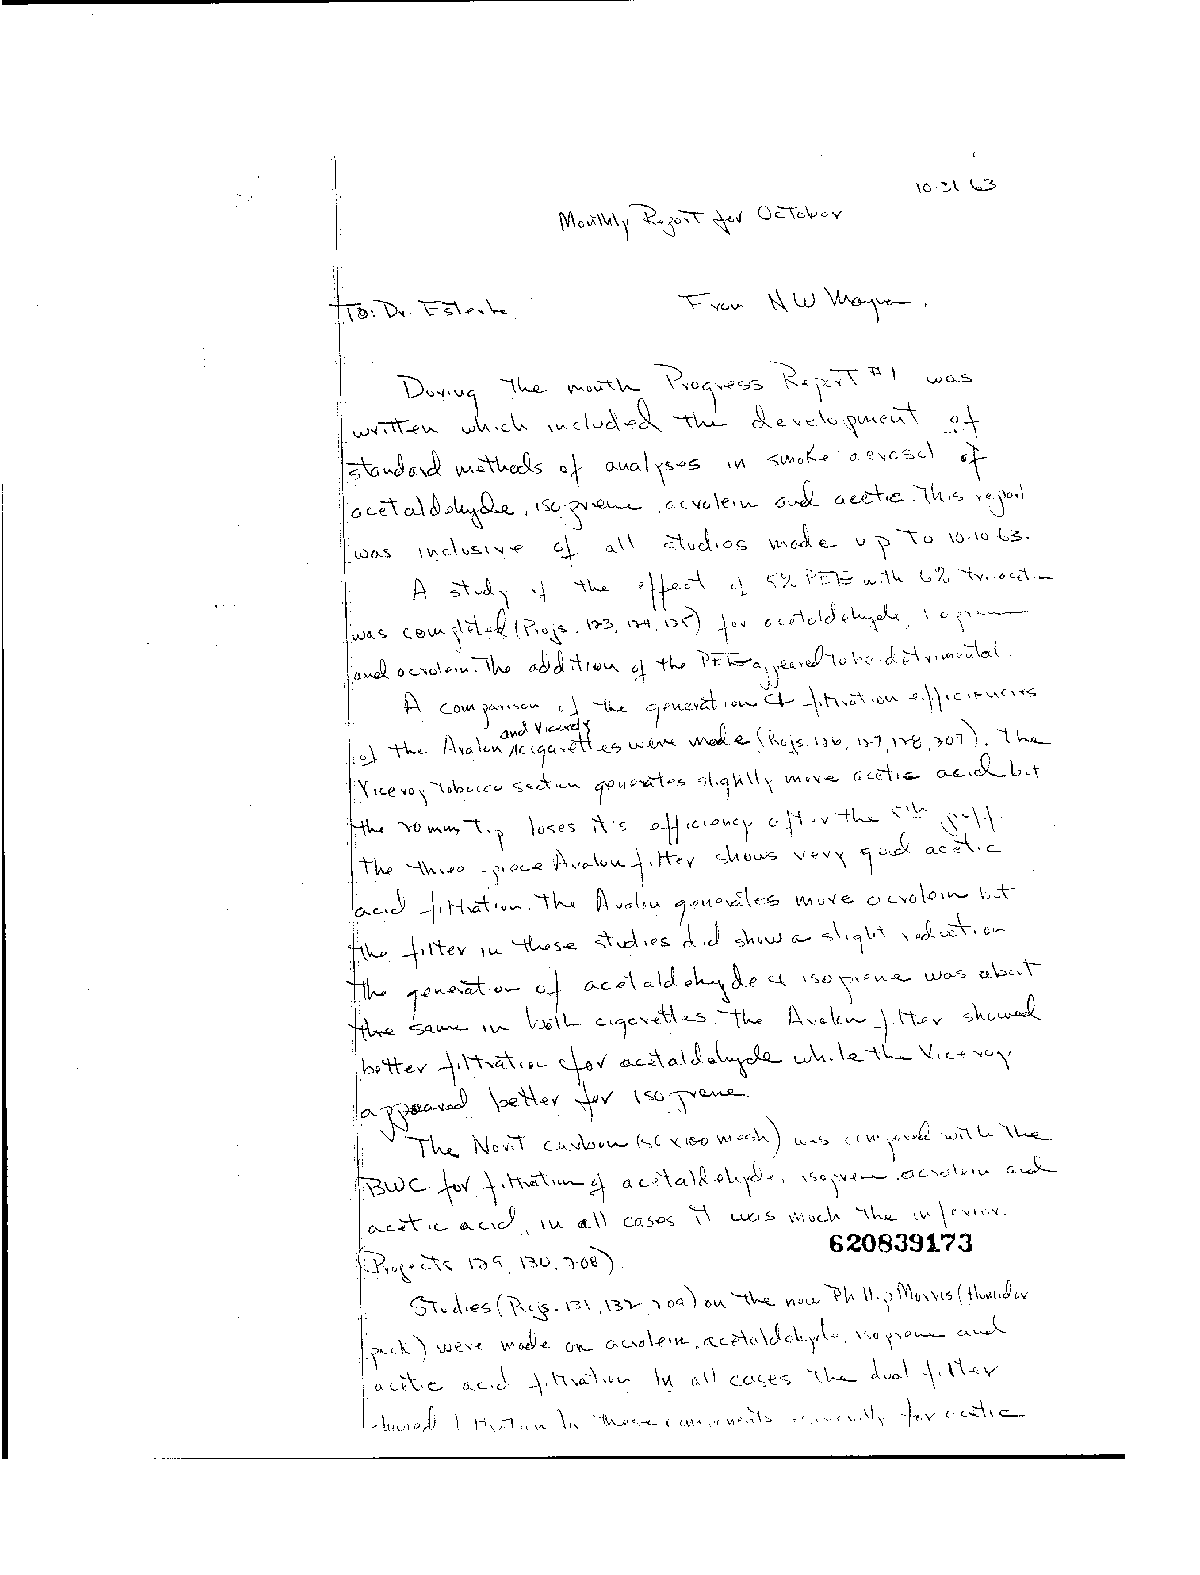 10-31 63
Monthly Report for October
To: Dr. Esterle From N W
During the month Progress Report #1 was
written which included the development of
standard methods of analyses in smoke aerosol of
acetaldehyde, isoprene, acrolein and acetic. This report
was inclusive of all studies made up to 10-10 63.
A study of the effect of 5% with 6% triacetin
was completed (Projs. 123, 124, 125) for acetaldehyde, isoprene
and acrolein. The addition of the appeared to be detrimental.
A comparison of the generation & filtration efficiencies
of the Avalon and Viceroy cigarettes were made (Projs. 126, 127, 128, 307). The
Viceroy tobacco section generates slightly more acetic acid but
the 20 mm tip loses it's efficiency after the 5th puff.
The three-piece Avalon filter shows very good acetic
acid filtration. The Avalon generates more acrolein but
the filter in these studies did show a slight reduction
The generation of acetaldehyde & isoprene was about
the same in both cigarettes. The Avalon filter showed
better filtration for acetaldehyde while the Viceroy
appeared better for isoprene.
The Norit carbon ( x100 mesh) was compared with the
BWC for filtration of acetaldehyde, isoprene, acrolein and
acetic acid, in all cases it was much the inferior.
(Projects 129, 130, 208).
620839173
Studies (Projs. 131, 132, 209) on the new Phillip Morris (Humidor
pack) were made on acrolein, acetaldehyde, isoprene and
acetic acid filtration In all cases the dual filter
showed filtration to these components for acetic